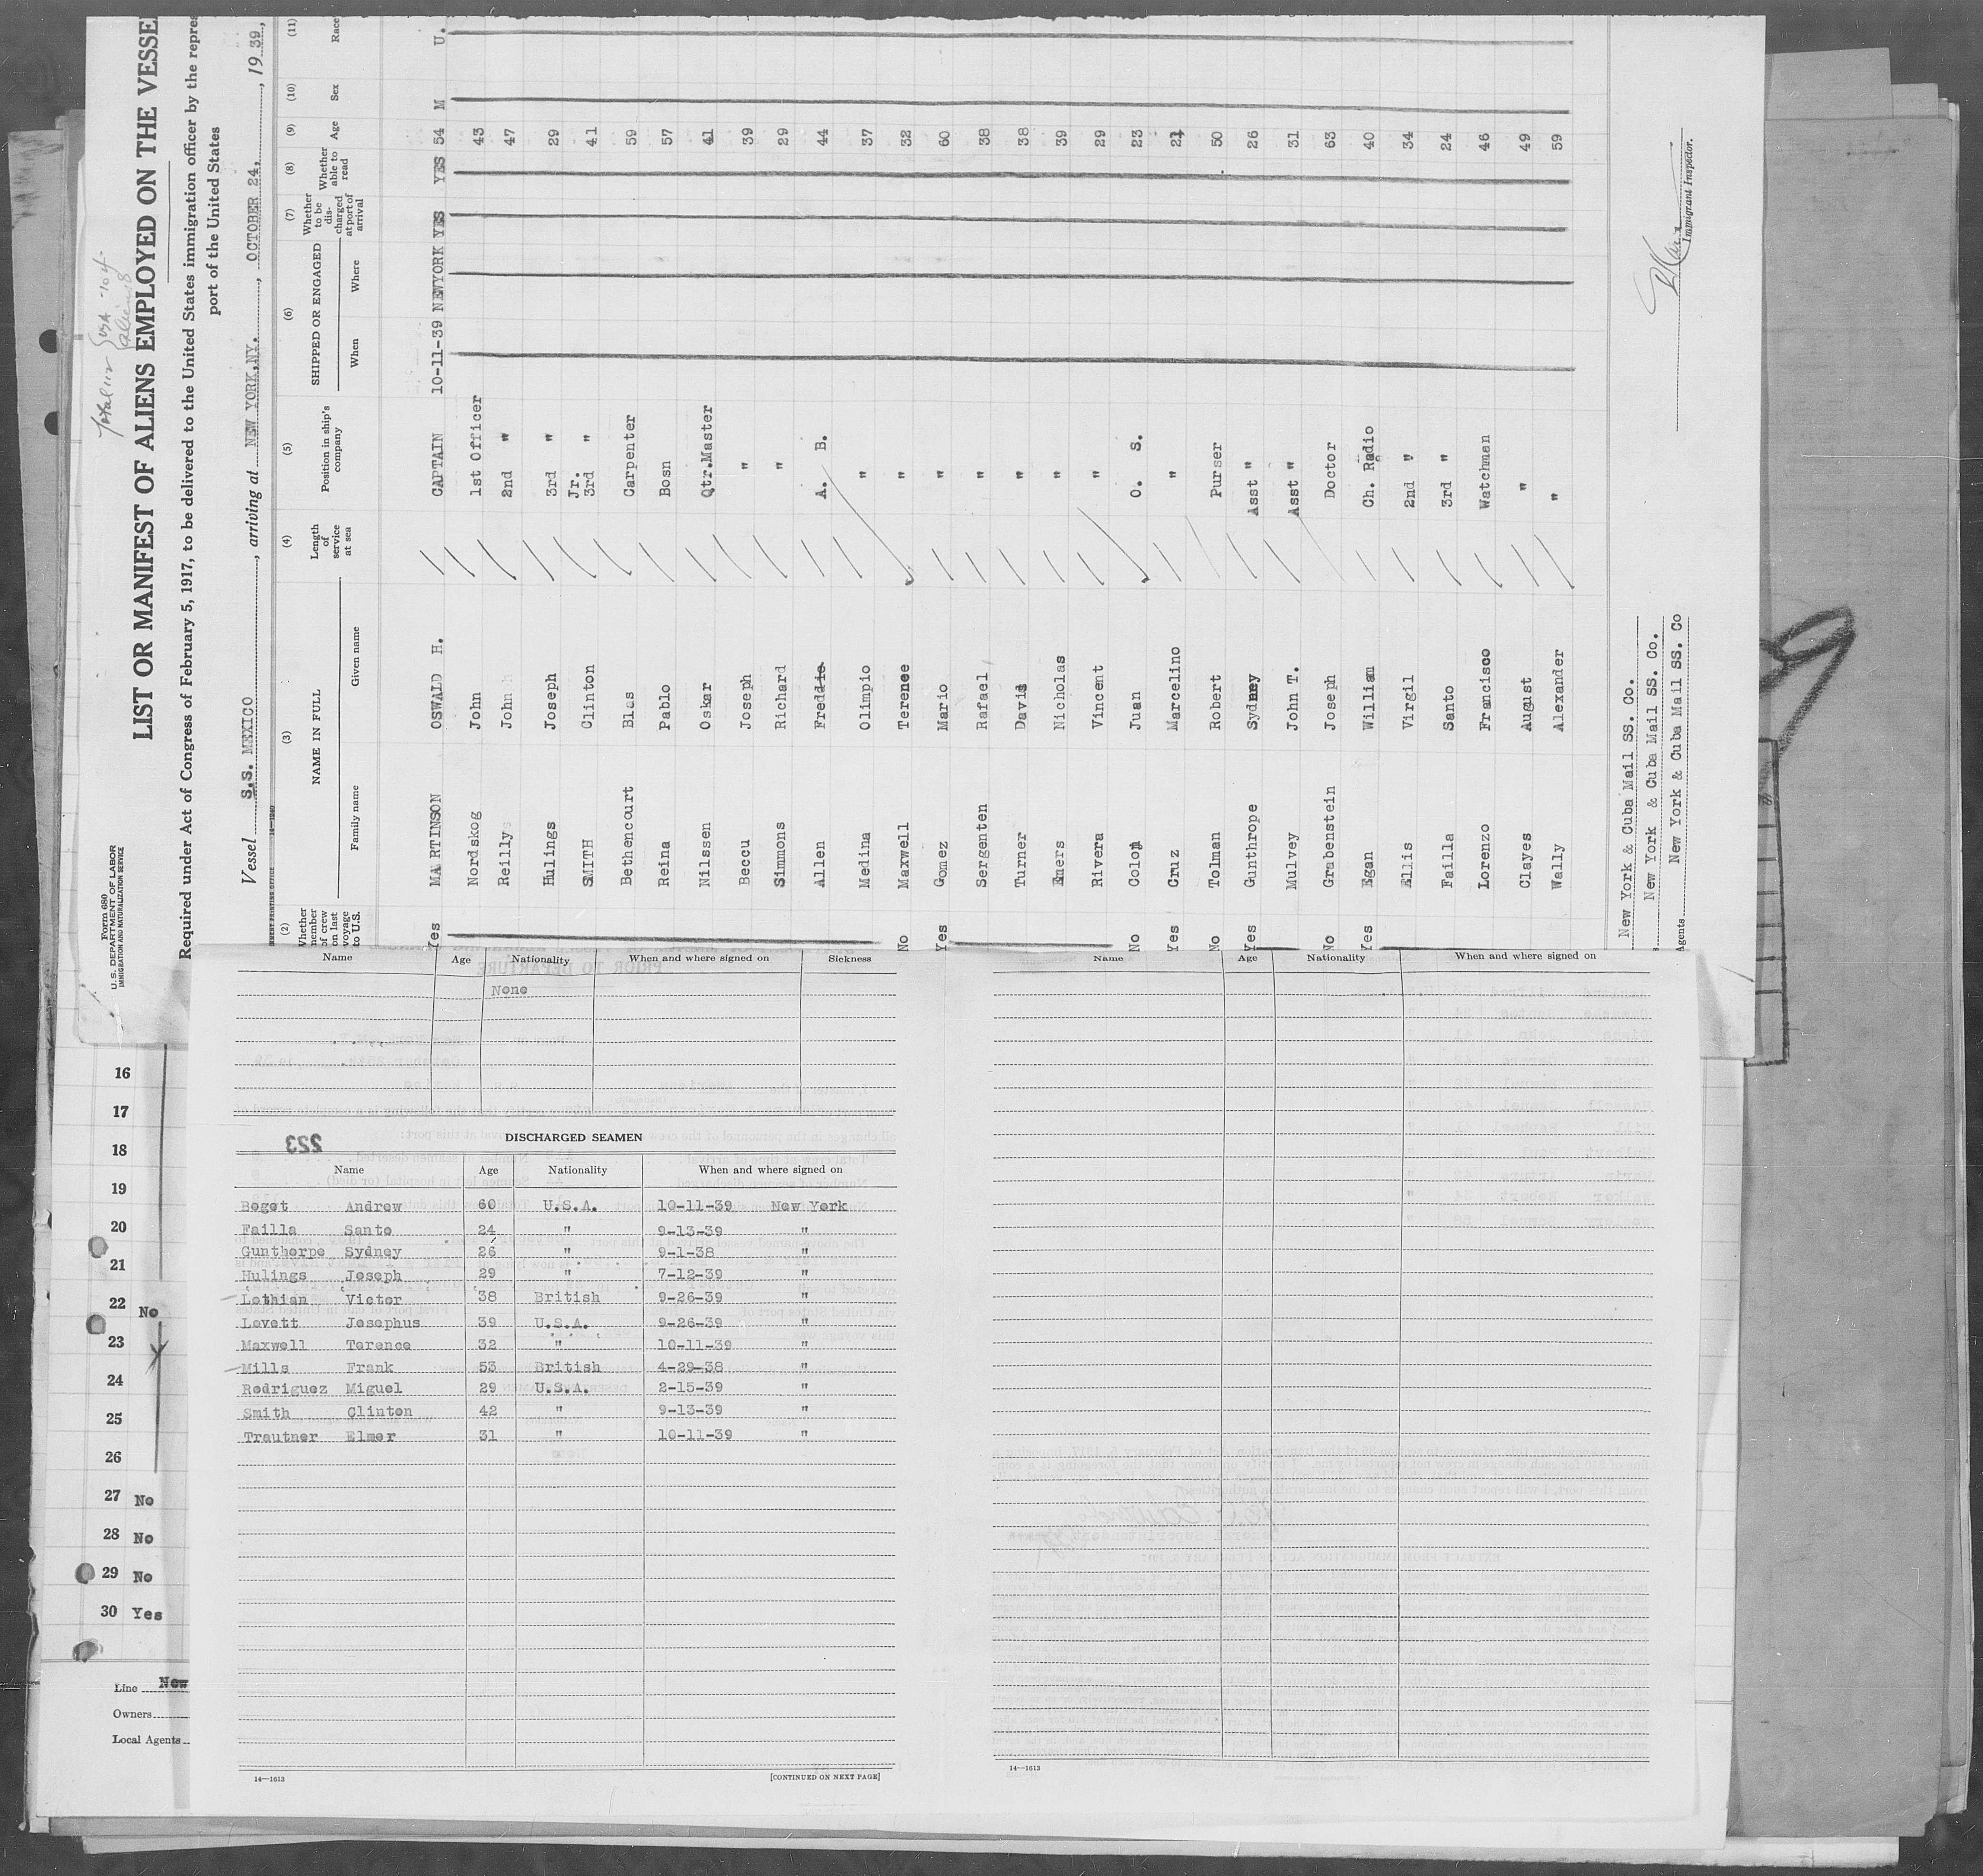 Form 680
U.S. DEPARTMENT OF LABOR
IMMIGRATION AND NATURALIZATION SERVICE
LIST OR MANIFEST OF ALIENS EMPLOYED ON THE VESSE
Required under Act of Congress of February 5, 1917, to be delivered to the United States immigration officer by the repres
port of the United States
Vessel S.S. MEXICO, arriving at NEW YORK, NY., OCTOBER 24, 1939
(2) (3) (4) (5) (6) (7) (8) (9) (10) (11)
Whether member of crew on last voyage to U.S. NAME IN FULL Family name Given name Length of service at sea Position in ship's company SHIPPED OR ENGAGED When Where Whether to be discharged at port of arrival Whether able to read Age Sex Race
Yes MARTINSON OSWALD H. CAPTAIN 10-11-39 NEWYORK YES YES 54 M U.
Nordskog John 1st Officer 43
Reilly John 2nd " 47
Hulings Joseph 3rd " 29
SMITH Clinton Jr. 3rd " 41
Bethencourt Blas Carpenter 59
Reina Pablo Bosn 57
Nilssen Oskar Qtr.Master 41
Beccu Joseph " 39
Simmons Richard " 29
Allen Freddie A. B. 44
Medina Olimpio " 37
No Maxwell Terence " 32
Yes Gomez Mario " 60
Sergenten Rafael " 38
Turner David " 38
Emers Nicholas " 39
Rivera Vincent " 29
No Colon Juan O. S. 23
Yes Cruz Marcelino " 21
No Tolman Robert Purser 50
Yes Gunthrope Sydney Asst " 26
Mulvey John T. Asst " 31
No Grabenstein Joseph Doctor 63
Yes Egan William Ch. Radio 40
Ellis Virgil 2nd " 34
Failla Santo 3rd " 24
Lorenzo Francisco Watchman 46
Clayes August " 49
Wally Alexander " 59
New York & Cuba Mail SS. Co.
New York & Cuba Mail SS. Co.
Agents New York & Cuba Mail SS. Co
Immigrant Inspector.
Name Age Nationality When and where signed on Sickness
None
223
DISCHARGED SEAMEN
Name Age Nationality When and where signed on
Boget Andrew 60 U.S.A. 10-11-39 New York
Failla Santo 24 " 9-13-39 "
Gunthorpe Sydney 26 " 9-1-38 "
Hulings Joseph 29 " 7-12-39 "
Lothian Victor 38 British 9-26-39 "
Lovett Josephus 39 U.S.A. 9-26-39 "
Maxwell Terence 32 " 10-11-39 "
Mills Frank 53 British 4-29-38 "
Rodriguez Miguel 29 U.S.A. 2-15-39 "
Smith Clinton 42 " 9-13-39 "
Trautner Elmer 31 " 10-11-39 "
14—1613 [CONTINUED ON NEXT PAGE]
Name Age Nationality When and where signed on
14—1613
16
17
18
19
20
21
22 No
23
24
25
26
27 No
28 No
29 No
30 Yes
Line New
Owners
Local Agents